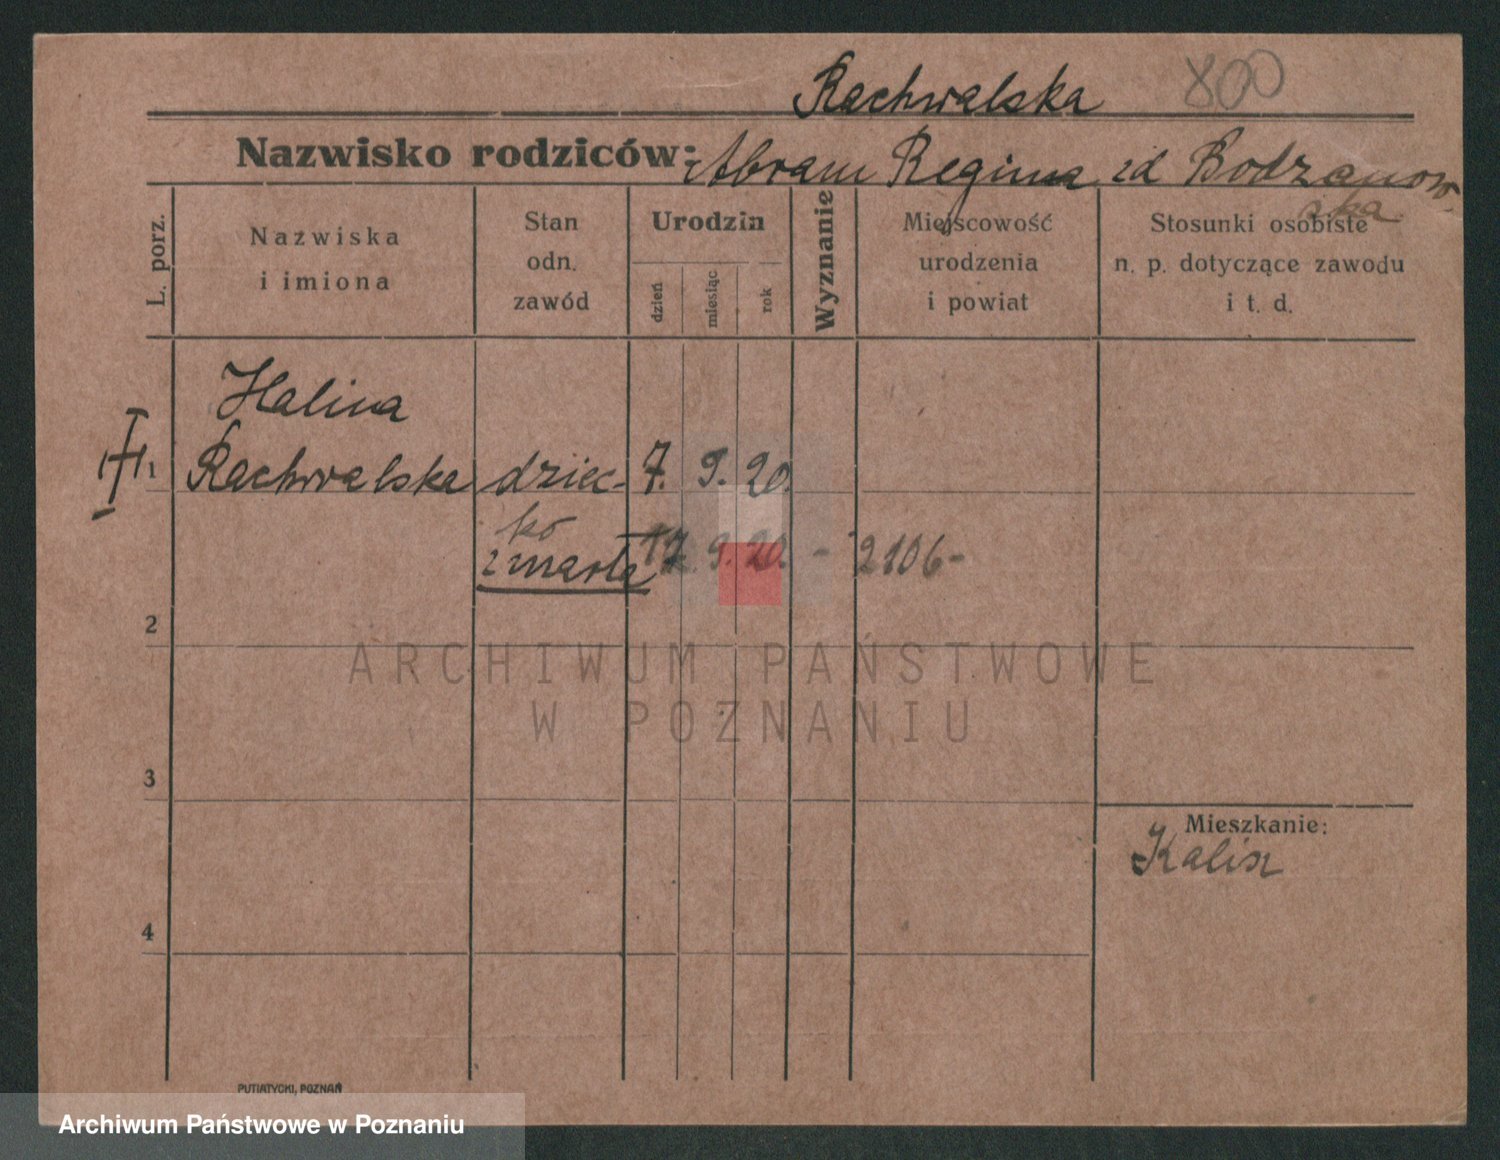 Rachwalska 800
Nazwisko rodziców: Abram Regina zd Bodzanow-
ska
L. porz.
Nazwiska
i imiona
Stan
odn.
zawód
Urodzin
dzień
miesiąc
rok
Wyznanie
Miejscowość
urodzenia
i powiat
Stosunki osobiste
n. p. dotyczące zawodu
i t. d.
Halina
1 Rachwalska dziec- 7. 9. 20.
ko
zmarła 17. 9. 20. - 2106-
2
ARCHIWUM PAŃSTWOWE
W POZNANIU
3
Mieszkanie:
Kalisz
4
PUTIATYCKI, POZNAŃ
Archiwum Państwowe w Poznaniu